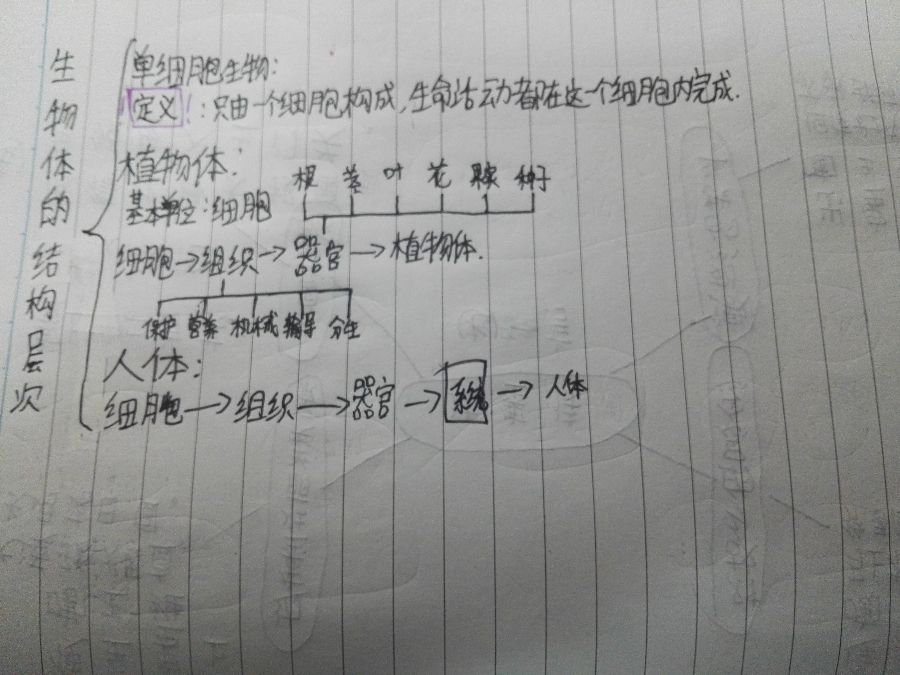 生物体的结构层次
单细胞生物:
定义:只由一个细胞构成,生命活动都在这个细胞内完成.
植物体:
根 茎 叶 花 果实 种子
基本单位:细胞
细胞→组织→器官→植物体.
保护 营养 机械 输导 分生
人体:
细胞→组织→器官→系统→人体